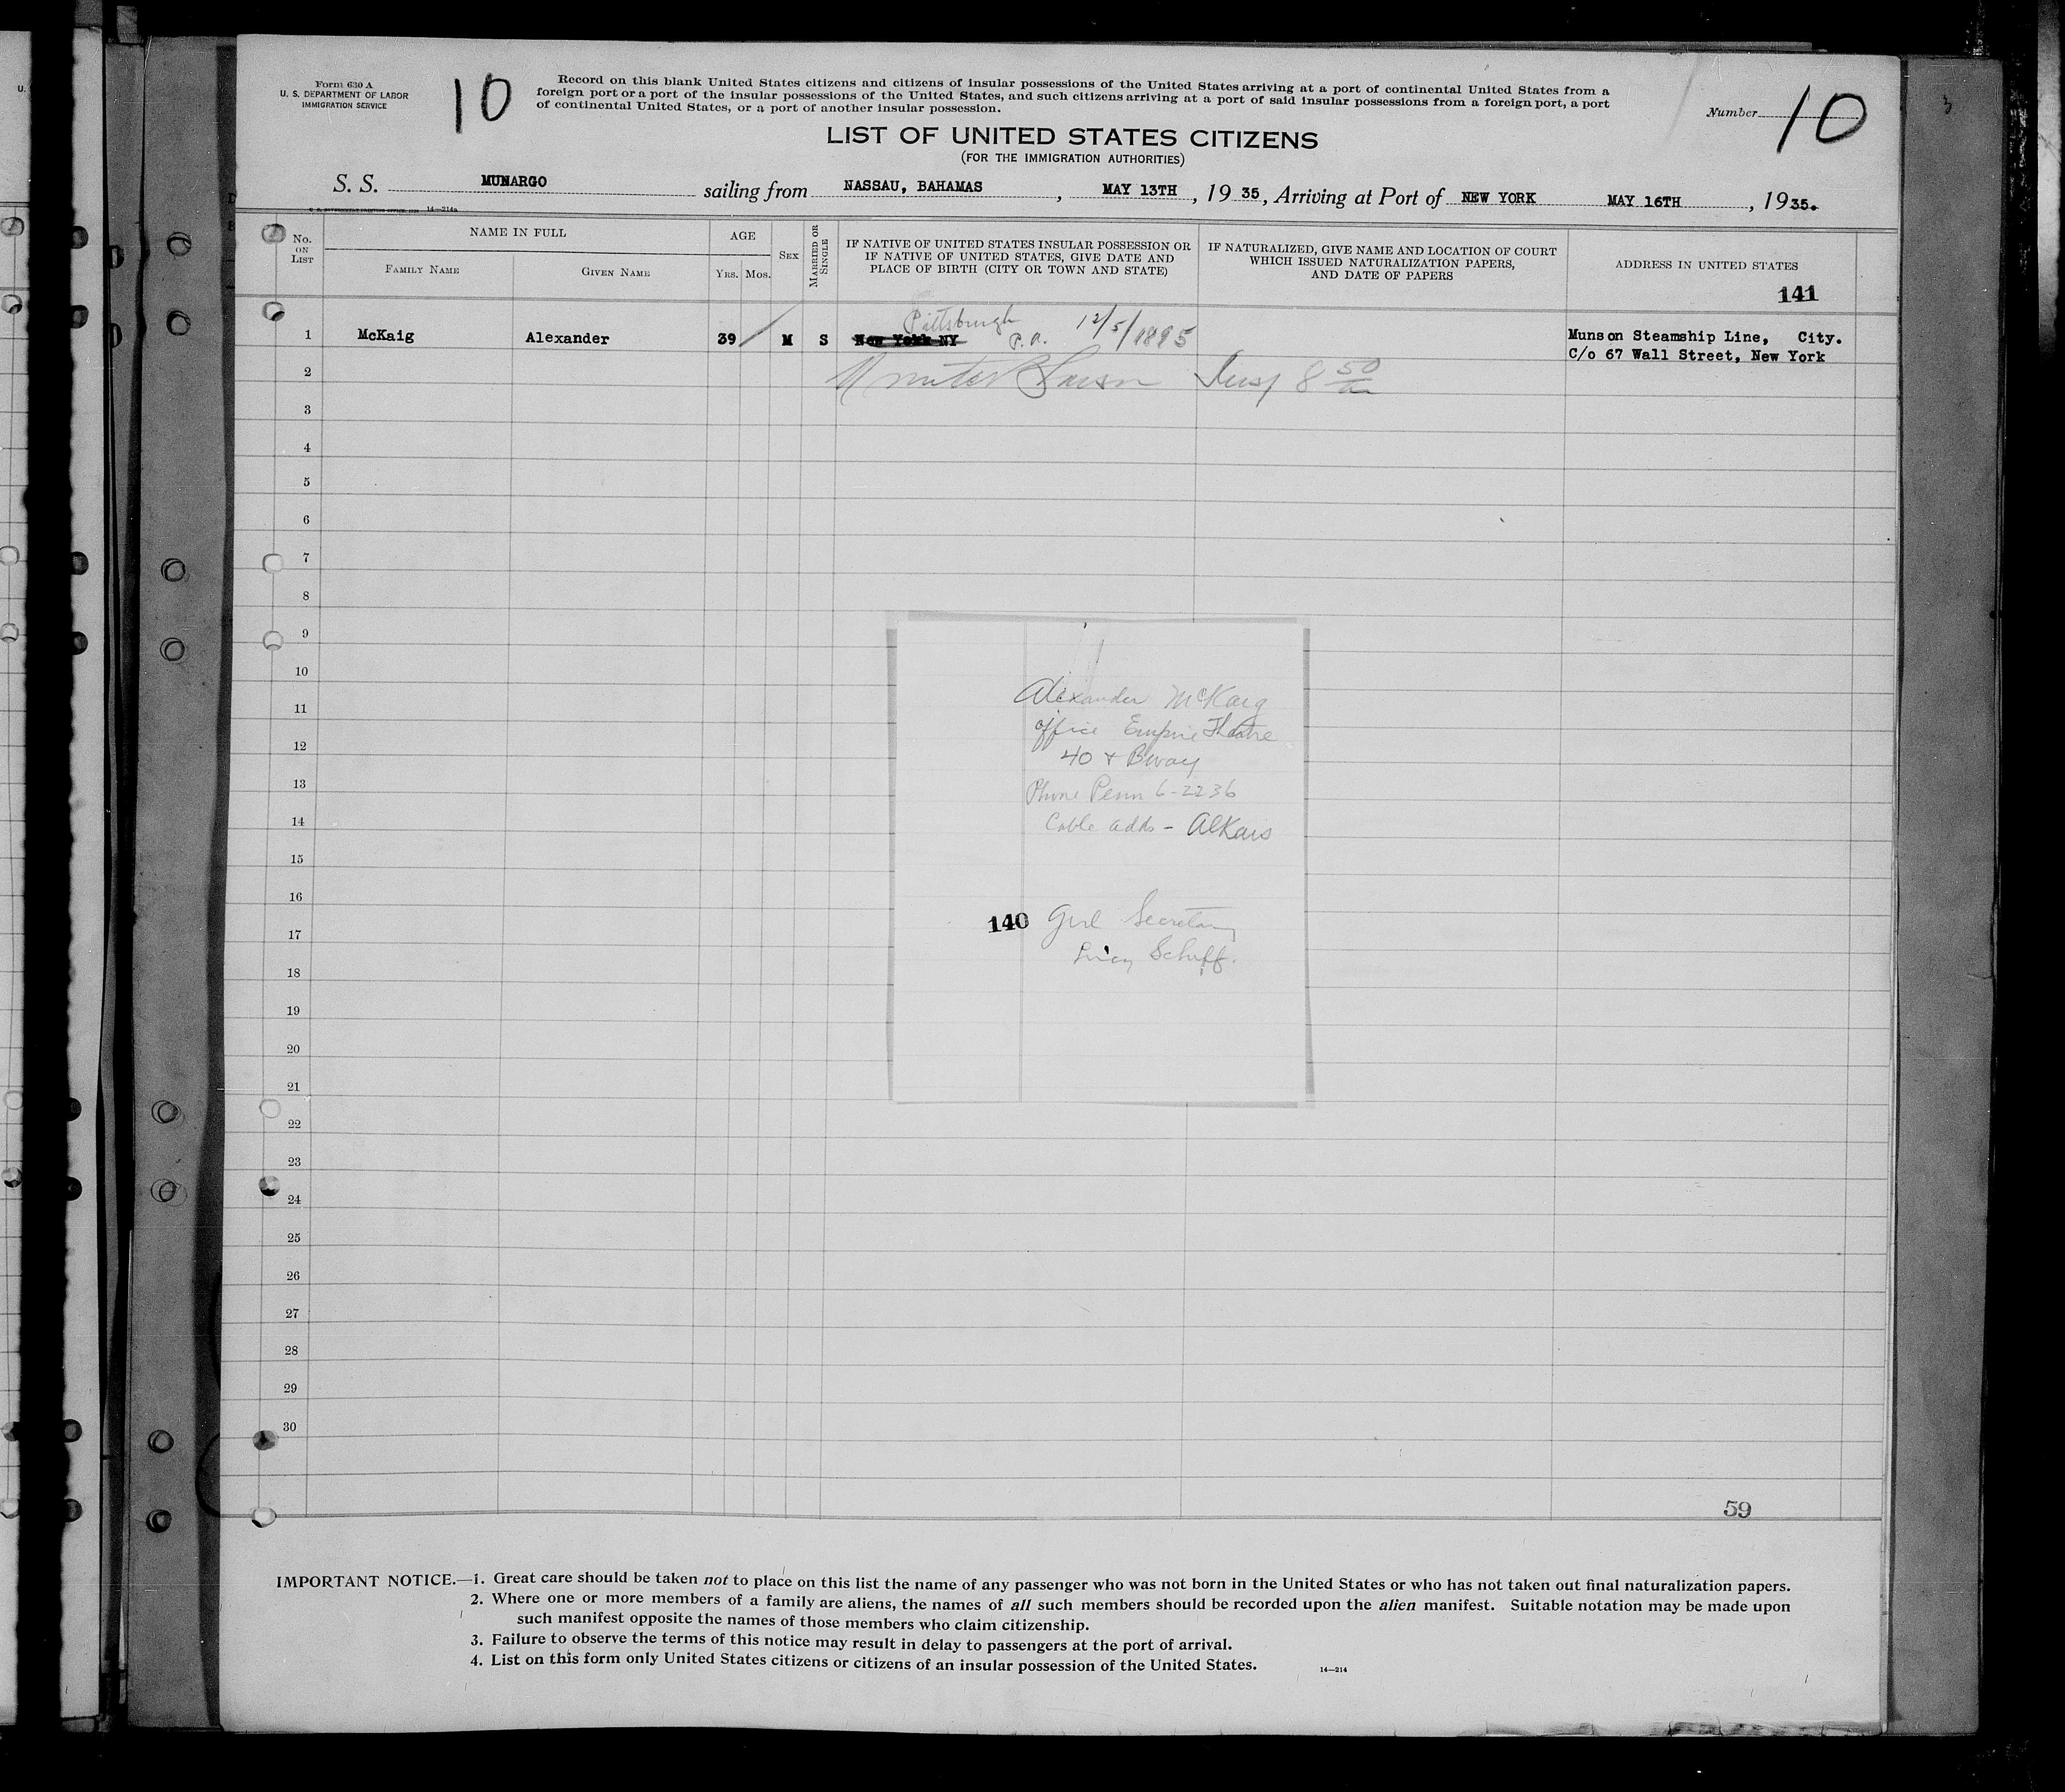 Form 630 A
U. S. DEPARTMENT OF LABOR
IMMIGRATION SERVICE
10
Record on this blank United States citizens and citizens of insular possessions of the United States arriving at a port of continental United States from a
foreign port or a port of the insular possessions of the United States, and such citizens arriving at a port of said insular possessions from a foreign port, a port
of continental United States, or a port of another insular possession.
Number 10
LIST OF UNITED STATES CITIZENS
(FOR THE IMMIGRATION AUTHORITIES)
S. S. MUNARGO sailing from NASSAU, BAHAMAS, MAY 13TH, 19 35, Arriving at Port of NEW YORK MAY 16TH, 19 35.
14—214a
No. ON LIST
NAME IN FULL
FAMILY NAME
GIVEN NAME
AGE
YRS.
MOS.
SEX
MARRIED OR SINGLE
IF NATIVE OF UNITED STATES INSULAR POSSESSION OR
IF NATIVE OF UNITED STATES, GIVE DATE AND
PLACE OF BIRTH (CITY OR TOWN AND STATE)
IF NATURALIZED, GIVE NAME AND LOCATION OF COURT
WHICH ISSUED NATURALIZATION PAPERS,
AND DATE OF PAPERS
ADDRESS IN UNITED STATES
141
Pittsburgh
1 McKaig Alexander 39 M S New York NY P.A. 12/5/1895 Munson Steamship Line, City.
C/o 67 Wall Street, New York
2
3
4
5
6
7
8
9
10
11
12
13
14
15
16
17
18
19
20
21
22
23
24
25
26
27
28
29
30
Alexander McKaig
Office Empire Theatre
40 & Bway
Phone Penn 6-2236
Cable adds -
140 Girl Secretary
59
IMPORTANT NOTICE.—1. Great care should be taken not to place on this list the name of any passenger who was not born in the United States or who has not taken out final naturalization papers.
2. Where one or more members of a family are aliens, the names of all such members should be recorded upon the alien manifest. Suitable notation may be made upon
such manifest opposite the names of those members who claim citizenship.
3. Failure to observe the terms of this notice may result in delay to passengers at the port of arrival.
4. List on this form only United States citizens or citizens of an insular possession of the United States.
14—214